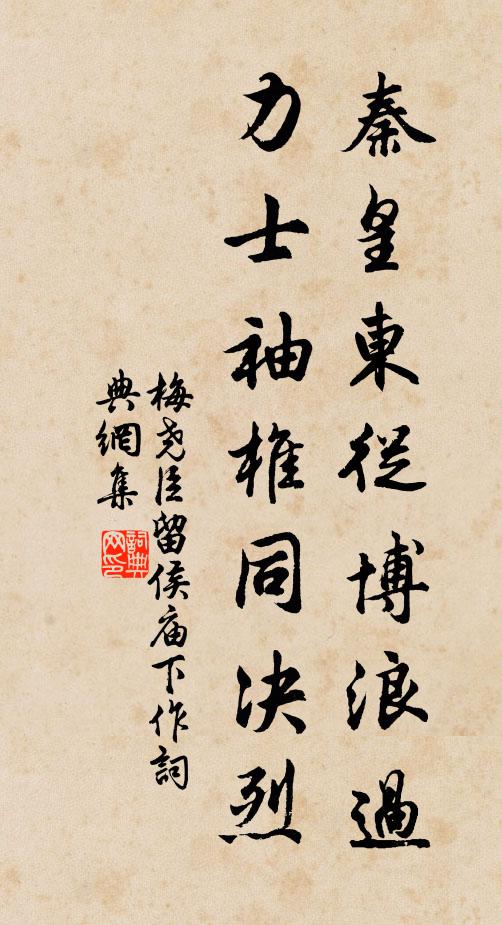 秦皇東從博浪過
力士袖椎同決烈
梅堯臣留侯庙下作詞
典網集
詞典
网印